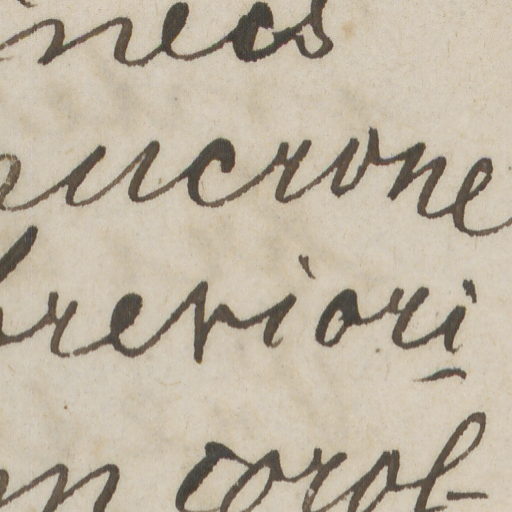 ineos
mucrone
breviori
m corol-